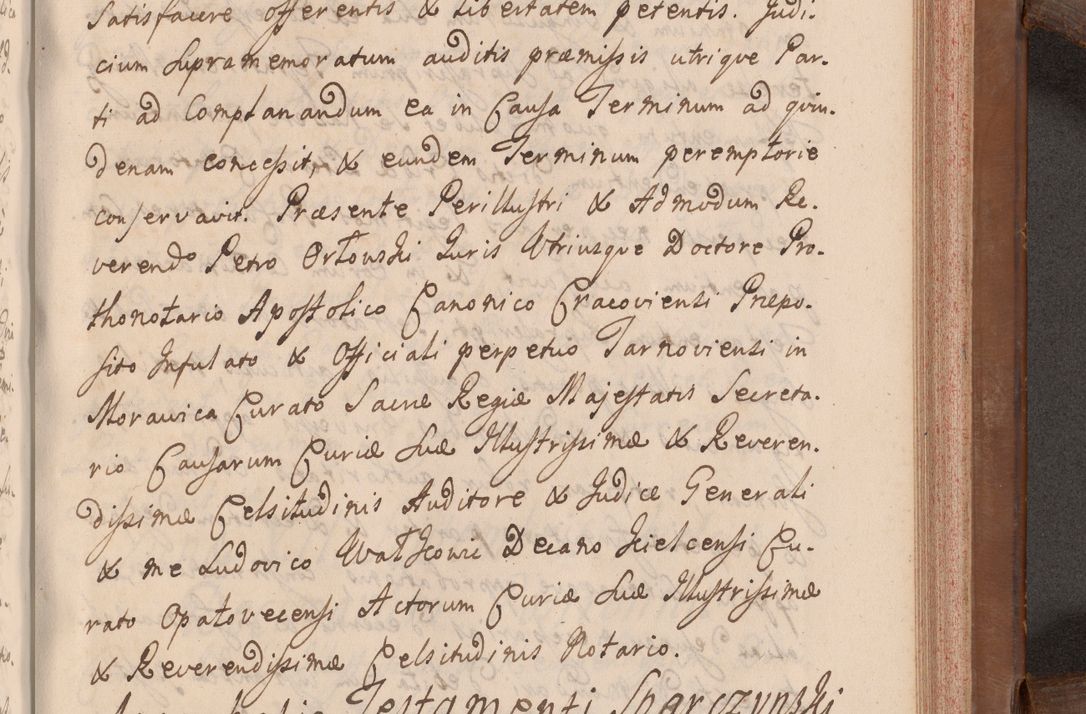 Satisfacere offerentis & Libertatem petentis. Judi-
cium Supramemoratum auditis præmissis utrique Par-
ti ad Complanandum ea in Causa Terminum ad quin-
denam concessit, & eundem Terminum peremptorie
conservavit. Præsente Perillustri & Admodum Re-
verendo Petro Orłowski Juris Utriusque Doctore Pro-
thonotario Apostolico Canonico Cracoviensi Præpo-
sito Infulato & Officiali perpetuo Tarnoviensi in
Morawica Curato Sacræ Regiæ Majestatis Secreta-
rio Causarum Curiæ Suæ Illustrissimæ & Reveren-
dissimæ Celsitudinis Auditore & Judice Generali
& me Ludovico Decano Kielcensi Cu-
rato Opatovecensi Actorum Curiæ Suæ Illustrissimæ
& Reverendissimæ Celsitudinis Notario.
Testamenti Skarczynski